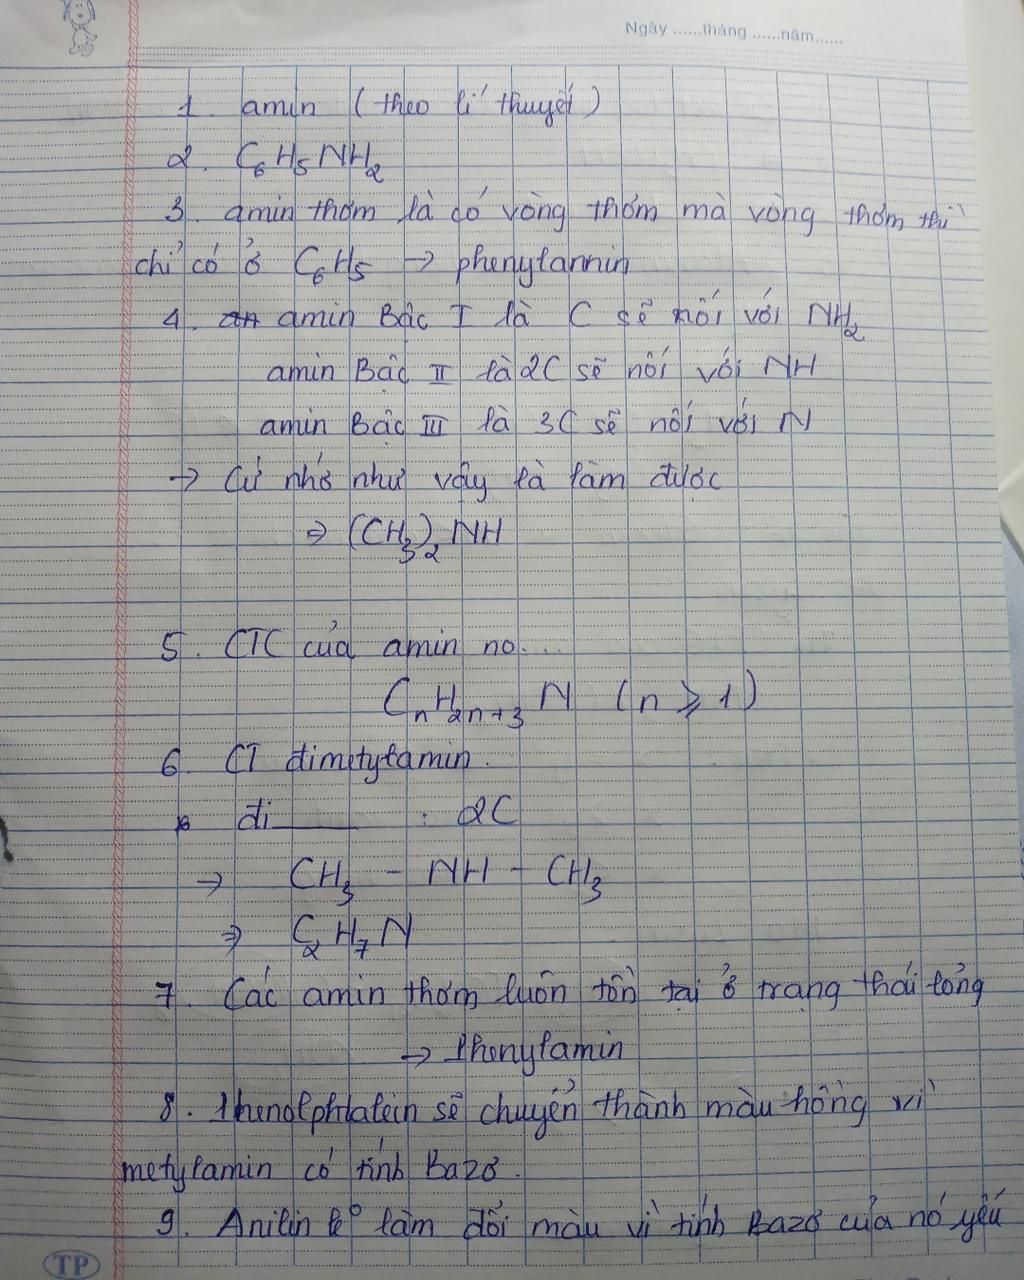 Ngày ......tháng ......năm......
1. amin (theo lí thuyết)
2. C₆H₅NH₂
3. amin thơm là có vòng thơm mà vòng thơm thì
chỉ có ở C₆H₅ → phenylamin
4. amin Bậc I là C sẽ nối với NH₂
amin Bậc II là 2C sẽ nối với NH
amin Bậc III là 3C sẽ nối với N
→ Cứ nhớ như vậy là làm được
⇒ (CH₃)₂NH
5. CTC của amin no...
CₙH₂ₙ₊₃N (n ⩾ 1)
6. CT đimetylamin.
đi : 2C
→ CH₃ - NH - CH₃
⇒ C₂H₇N
7. Các amin thơm luôn tồn tại ở trạng thái lỏng
→ Phenylamin
8. Phenolphtalein sẽ chuyển thành màu hồng vì
metylamin có tính Bazơ.
9. Anilin k° làm đổi màu vì tính Bazơ của nó yếu
TP